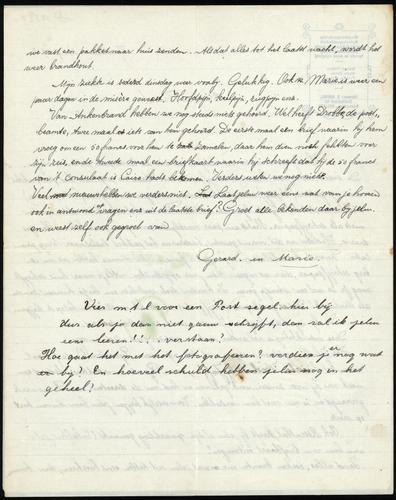 we vast een pakket naar huis zenden. Als dat alles tot het laatst wacht, wordt het
weer brandhout.
Mijn ziekte is sedert dinsdag weer voorbij. Gelukkig. Ook Marie is weer een
paar dagen in de misère geweest. Hoofdpijn, keelpijn, rugpijn enz.
Van Ankenbrand hebben we nog steeds niets gehoord. Wel heeft de post-
beambte, twee maal iets van hem gehoord. De eerste maal een brief waarin hij hem
vroeg om een 50 francs voor hem te zamelen, daar hem die nog te kort voor
zijn reis en de tweede maal een briefkaart waarin hij schreef dat hij de 50 francs
van 't consulaat in Caïro had bekomen. Verders weten we nog niets.
Veel nieuws hebben we verders niet. Laat jelui weer eens wat van je hooren
ook in antwoord vragen enz uit de laatste brief? Groet alle bekenden daar bij jelui.
en weest zelf ook gegroet van
Gerard. en Marie.
Vier m t l voor een Post segel hier bij
dus als je dan niet gauw schrijft, dan zal ik jelui
eens leeren!!! verstaan?
Hoe gaat het met het fotografeeren? verdien je er nog wat
bij? En hoeveel schuld hebben jelui nog in het
geheel?